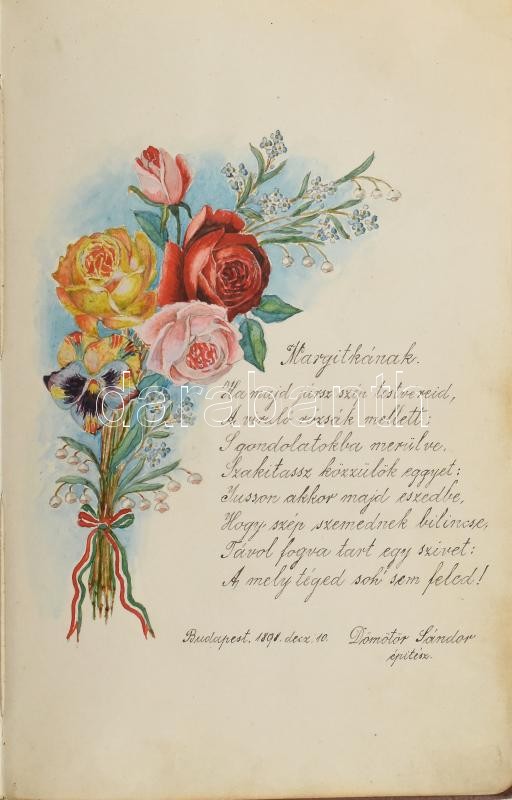 Margitkának.
Ha majd jársz szép testvéreid,
A viruló rózsák mellett
S gondolatokba merülve.
Szakitassz közzülök eggyet:
Jusson akkor majd eszedbe,
Hogy szép szemednek bilincse,
Távol fogva tart egy szivet:
A mely téged soh' sem feled!
Budapest. 1898. decz. 10. Dömötör Sándor
épitész.
darabanth